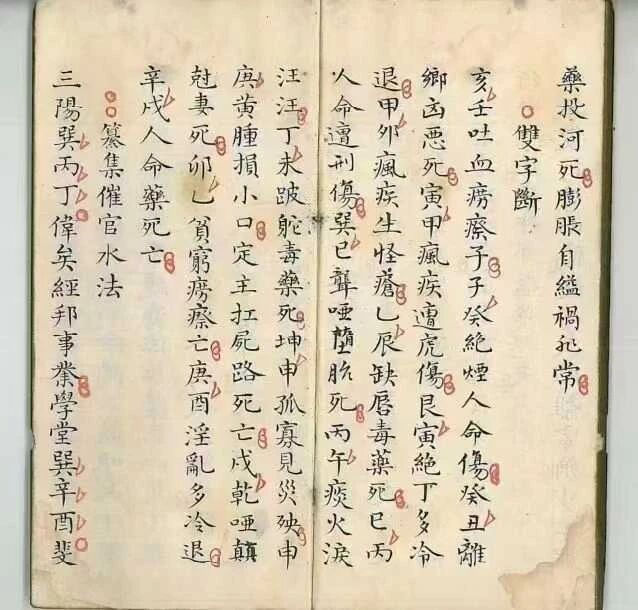 藥投河死膨脹自縊禍非常
雙字斷
亥壬吐血癆瘵子子癸絕煙人命傷癸丑離
鄉凶惡死寅甲瘋疾遭虎傷艮寅絕丁多冷
退甲卯瘋疾生怪瘡乙辰缺唇毒藥死巳丙
人命遭刑傷巽巳聾啞墮胎死丙午痰火淚
汪汪丁未跛跎毒藥死坤申孤寡見災殃申
庚黃腫損小口定主扛屍路死亡戌乾啞顛
尅妻死卯乙貧窮癆瘵亡庚酉淫亂多冷退
辛戌人命藥死亡
纂集催官水法
三陽巽丙丁偉矣經邦事業學堂巽辛酉斐